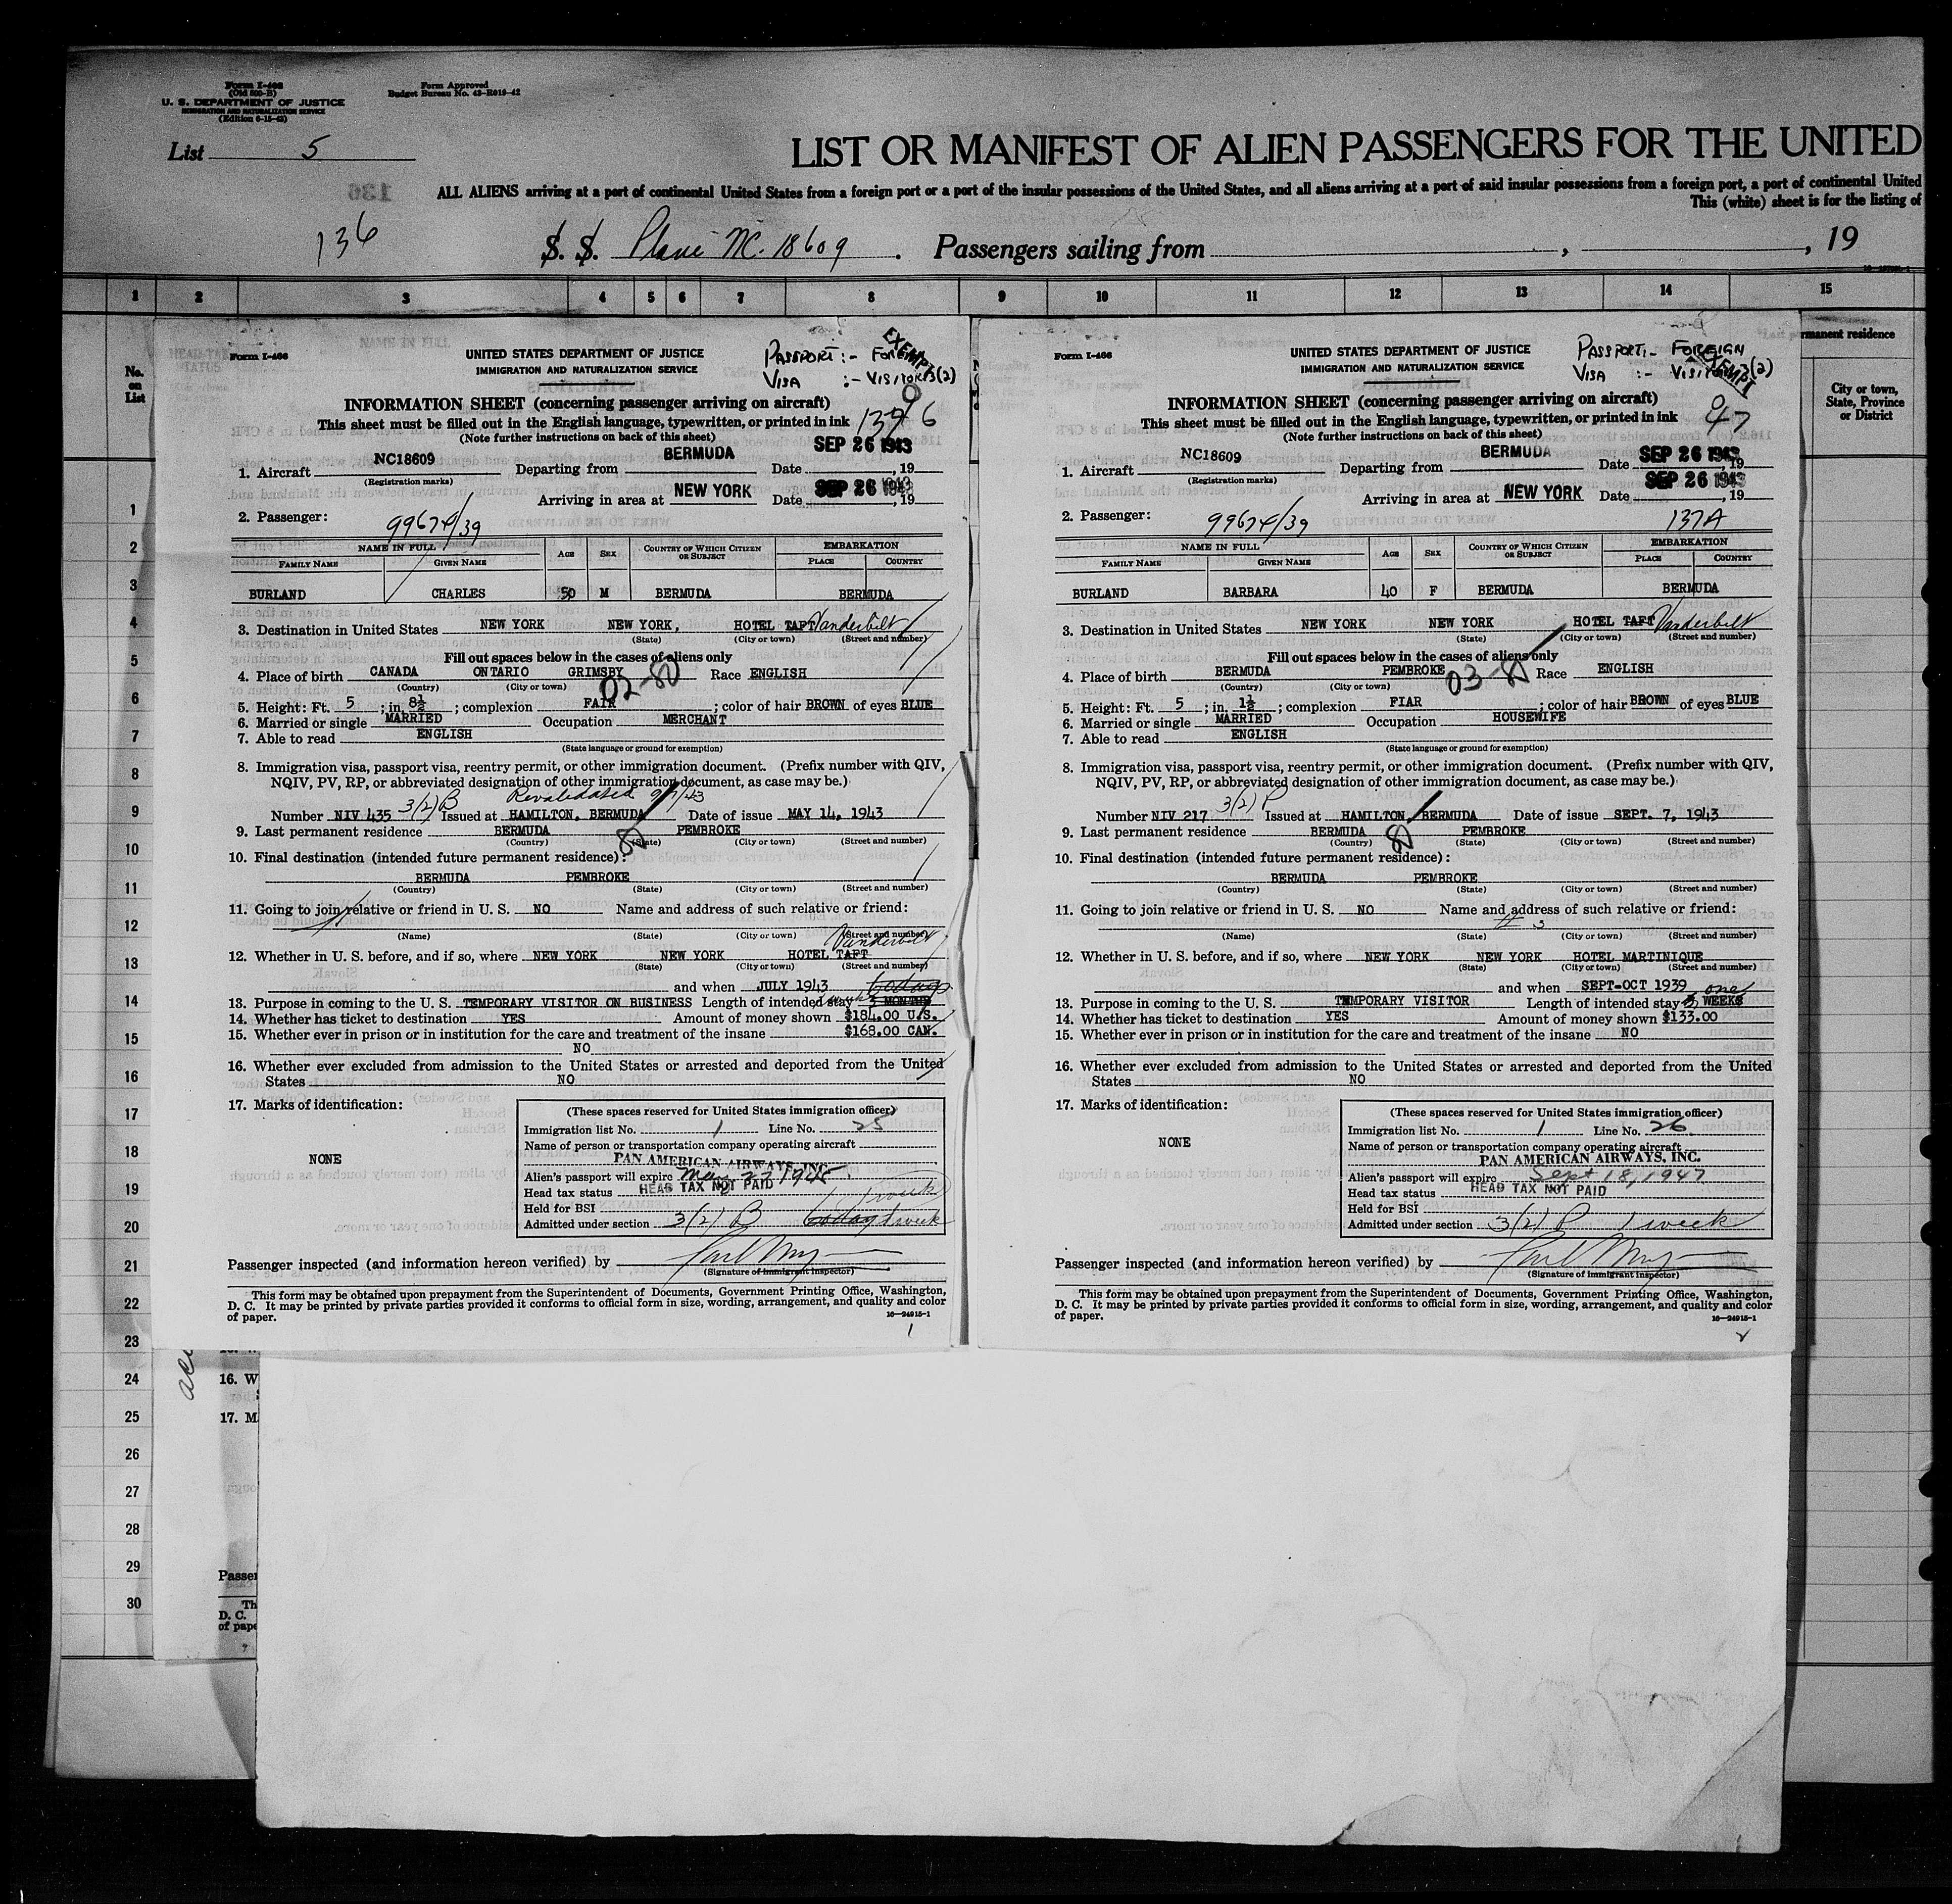 Form I-466
(Old 500-B)
U. S. DEPARTMENT OF JUSTICE
IMMIGRATION AND NATURALIZATION SERVICE
(Edition 6-15-42)
Form Approved
Budget Bureau No. 43-R019-42
List 5
LIST OR MANIFEST OF ALIEN PASSENGERS FOR THE UNITED
ALL ALIENS arriving at a port of continental United States from a foreign port or a port of the insular possessions of the United States, and all aliens arriving at a port of said insular possessions from a foreign port, a port of continental United
This (white) sheet is for the listing of
136
S. S. Plane NC. 18609. Passengers sailing from , , 19
1 2 3 4 5 6 7 8 9 10 11 12 13 14 15
No. on List
1
2
3
4
5
6
7
8
9
10
11
12
13
14
15
16
17
18
19
20
21
22
23
24
25
26
27
28
29
30
rmanent residence
City or town,
State, Province
or District
Form I-466
UNITED STATES DEPARTMENT OF JUSTICE
IMMIGRATION AND NATURALIZATION SERVICE
PASSPORT:- FOREIGN
VISA :- VISITOR 3(2)
EXEMPT
INFORMATION SHEET (concerning passenger arriving on aircraft)
This sheet must be filled out in the English language, typewritten, or printed in ink
(Note further instructions on back of this sheet)
1. Aircraft NC18609 Departing from BERMUDA Date SEP 26 1943, 19
(Registration marks)
Arriving in area at NEW YORK Date SEP 26 1943, 19
2. Passenger: 99674/39
NAME IN FULL AGE SEX COUNTRY OF WHICH CITIZEN OR SUBJECT EMBARKATION
FAMILY NAME GIVEN NAME PLACE COUNTRY
BURLAND CHARLES 50 M BERMUDA BERMUDA
3. Destination in United States NEW YORK NEW YORK, HOTEL TAFT Vanderbilt
(State) (City or town) (Street and number)
Fill out spaces below in the cases of aliens only
4. Place of birth CANADA ONTARIO GRIMSBY Race ENGLISH
(Country) (City or town)
02-80
5. Height: Ft. 5; in. 8½; complexion FAIR; color of hair BROWN of eyes BLUE
6. Married or single MARRIED Occupation MERCHANT
7. Able to read ENGLISH
(State language or ground for exemption)
8. Immigration visa, passport visa, reentry permit, or other immigration document. (Prefix number with QIV,
NQIV, PV, RP, or abbreviated designation of other immigration document, as case may be.)
3(2)B Revalidated 9/7/43
Number NIV 435 Issued at HAMILTON, BERMUDA Date of issue MAY 14, 1943
9. Last permanent residence BERMUDA PEMBROKE
(Country) (State) (City or town) (Street and number)
80
10. Final destination (intended future permanent residence):
BERMUDA PEMBROKE
(Country) (State) (City or town) (Street and number)
11. Going to join relative or friend in U. S. NO Name and address of such relative or friend:
(Name) (State) (City or town) (Street and number)
Vanderbilt
12. Whether in U. S. before, and if so, where NEW YORK NEW YORK HOTEL TAFT
(State) (City or town) (Street and number)
and when JULY 1943
13. Purpose in coming to the U. S. TEMPORARY VISITOR ON BUSINESS Length of intended stay 3 MONTHS
14. Whether has ticket to destination YES Amount of money shown $184.00 U.S.
15. Whether ever in prison or in institution for the care and treatment of the insane $168.00 CAN.
NO
16. Whether ever excluded from admission to the United States or arrested and deported from the United
States NO
17. Marks of identification:
NONE
(These spaces reserved for United States immigration officer)
Immigration list No. 1 Line No. 25
Name of person or transportation company operating aircraft
PAN AMERICAN AIRWAYS, INC.
Alien's passport will expire May 27 1945
Head tax status HEAD TAX NOT PAID
Held for BSI 1 week
Admitted under section 3(2) B 60 days 1 week
Passenger inspected (and information hereon verified) by
(Signature of Immigrant Inspector)
This form may be obtained upon prepayment from the Superintendent of Documents, Government Printing Office, Washington,
D. C. It may be printed by private parties provided it conforms to official form in size, wording, arrangement, and quality and color
of paper.
16—24915-1
1
Form I-466
UNITED STATES DEPARTMENT OF JUSTICE
IMMIGRATION AND NATURALIZATION SERVICE
PASSPORT:- FOREIGN
VISA :- VISITOR 3(2)
EXEMPT
INFORMATION SHEET (concerning passenger arriving on aircraft)
This sheet must be filled out in the English language, typewritten, or printed in ink
(Note further instructions on back of this sheet)
1. Aircraft NC18609 Departing from BERMUDA Date SEP 26 1943, 19
(Registration marks)
Arriving in area at NEW YORK Date SEP 26 1943, 19
2. Passenger: 99674/39 137A
NAME IN FULL AGE SEX COUNTRY OF WHICH CITIZEN OR SUBJECT EMBARKATION
FAMILY NAME GIVEN NAME PLACE COUNTRY
BURLAND BARBARA 40 F BERMUDA BERMUDA
3. Destination in United States NEW YORK NEW YORK HOTEL TAFT Vanderbilt
(State) (City or town) (Street and number)
Fill out spaces below in the cases of aliens only
4. Place of birth BERMUDA PEMBROKE Race ENGLISH
(Country) (City or town)
03-80
5. Height: Ft. 5; in. 1½; complexion FIAR; color of hair BROWN of eyes BLUE
6. Married or single MARRIED Occupation HOUSEWIFE
7. Able to read ENGLISH
(State language or ground for exemption)
8. Immigration visa, passport visa, reentry permit, or other immigration document. (Prefix number with QIV,
NQIV, PV, RP, or abbreviated designation of other immigration document, as case may be.)
3(2) P
Number NIV 217 Issued at HAMILTON, BERMUDA Date of issue SEPT. 7, 1943
9. Last permanent residence BERMUDA PEMBROKE
(Country) (State) (City or town) (Street and number)
80
10. Final destination (intended future permanent residence):
BERMUDA PEMBROKE
(Country) (State) (City or town) (Street and number)
11. Going to join relative or friend in U. S. NO Name and address of such relative or friend:
(Name) (State) (City or town) (Street and number)
12. Whether in U. S. before, and if so, where NEW YORK NEW YORK HOTEL MARTINIQUE
(State) (City or town) (Street and number)
and when SEPT-OCT 1939
13. Purpose in coming to the U. S. TEMPORARY VISITOR Length of intended stay one WEEKS
14. Whether has ticket to destination YES Amount of money shown $133.00
15. Whether ever in prison or in institution for the care and treatment of the insane NO
16. Whether ever excluded from admission to the United States or arrested and deported from the United
States NO
17. Marks of identification:
NONE
(These spaces reserved for United States immigration officer)
Immigration list No. 1 Line No. 26
Name of person or transportation company operating aircraft
PAN AMERICAN AIRWAYS, INC.
Alien's passport will expire Sept 18, 1947
Head tax status HEAD TAX NOT PAID
Held for BSI
Admitted under section 3(2) P 1 week
Passenger inspected (and information hereon verified) by
(Signature of Immigrant Inspector)
This form may be obtained upon prepayment from the Superintendent of Documents, Government Printing Office, Washington,
D. C. It may be printed by private parties provided it conforms to official form in size, wording, arrangement, and quality and color
of paper.
16—24915-1
2
16. W
17. M
Passe
Th
D. C.
of pape